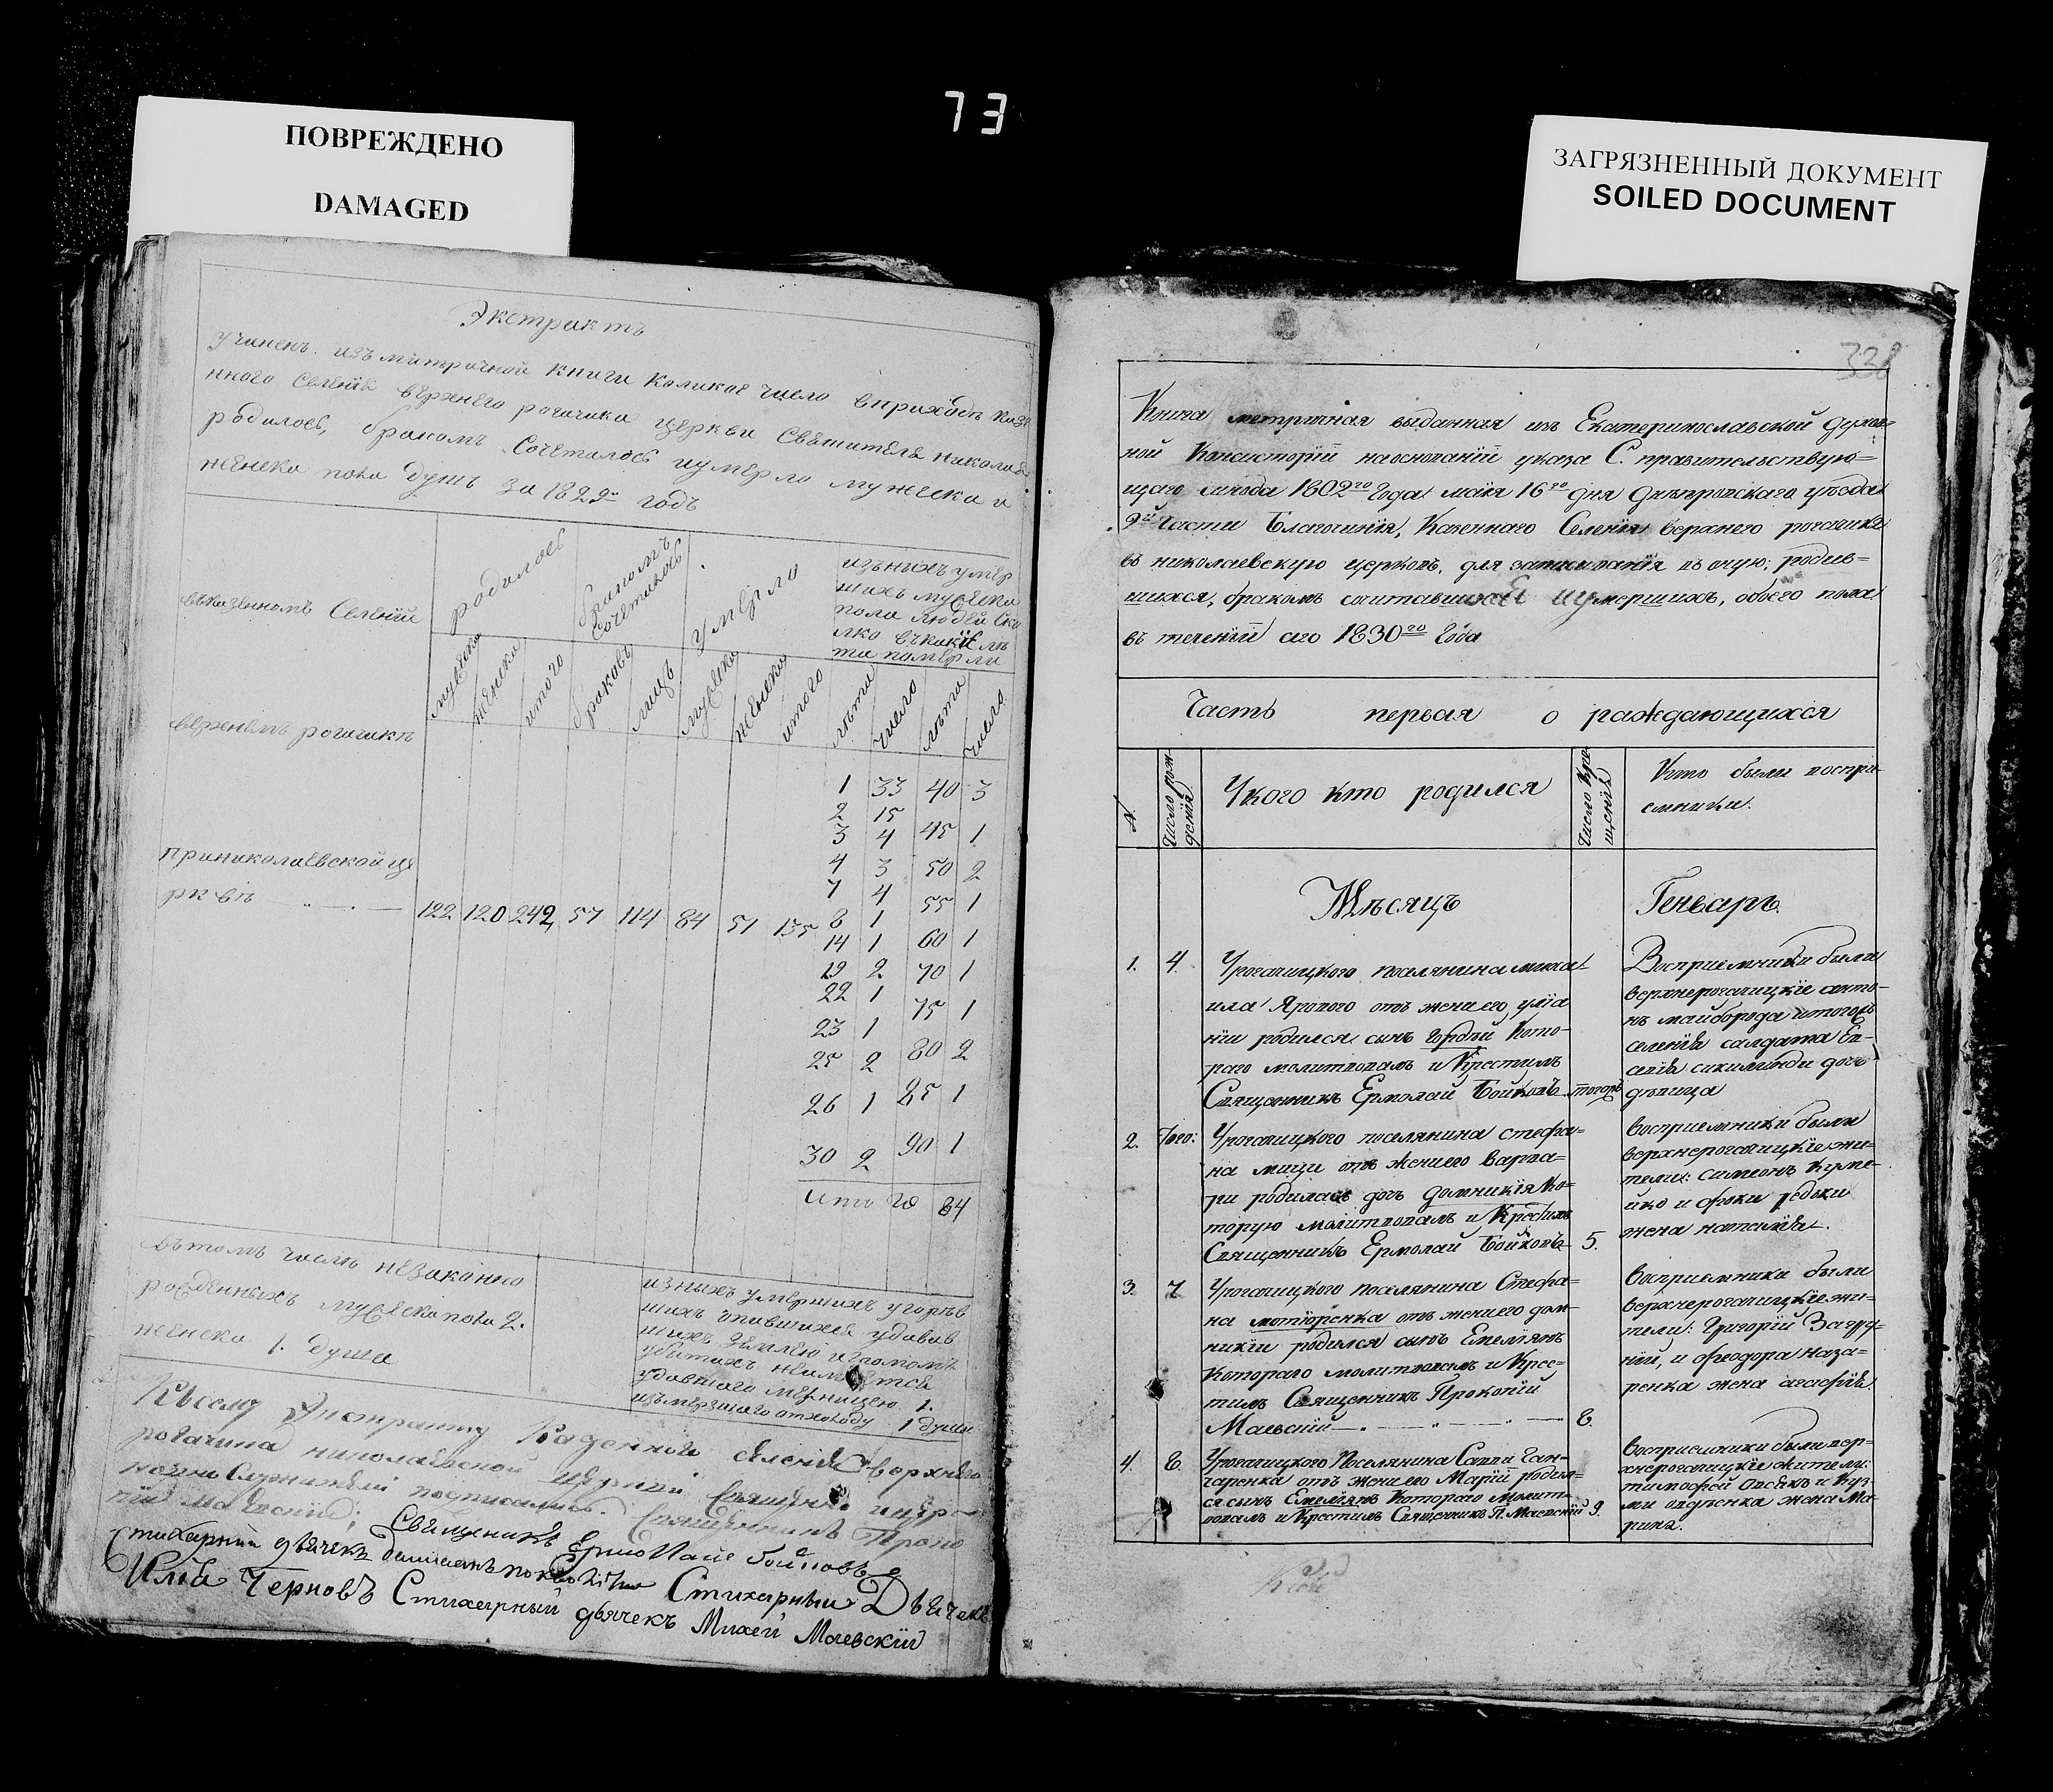 73
ПОВРЕЖДЕНО
DAMAGED
ЗАГРЯЗНЕННЫЙ ДОКУМЕНТ
SOILED DOCUMENT
Экстрактъ
учиненъ изъ митрочной книги Коликое число вприходъ казе
нного селенія верхнего рогачика церкви Святителя николая
родилось, бракомъ сочеталось иумерло мужеска и
женска пола душъ за 1829й годъ
вказенномъ Селеній
родилось
бракомъ сочеталось
умерло
изънихъ умер
шихъ мужеска
пола людей ско
лко вкакіе лѣ
та померли
мужеска
женска
итого
браковъ
лицъ
мужеска
женска
итого
лѣта
число
лѣта
число
верхнемъ рогачикѣ
приниколаевской це
рквѣ
122 120 242 57 114 84 51 135
1 33 40 3
2 15
3 4 45 1
4 3 50 2
7 4 55 1
8 1
14 1 60 1
19 2 70 1
22 1 75 1
23 1
25 2 80 2
26 1 85 1
30 2 90 1
Итого 84
вътомъ числѣ незаконно
рожденныхъ мужеска пола 2.
женска 1. душа
изнихъ умершихъ угорев
шихъ опившихся удавив
шихъ землею игромомъ
убитыхъ неимеется
удавшаго мерницею 1.
1 душа
Късему Экстракту Казенного селенія верхнего
рогачика николаевской церкви Священно ицер-
ковно Служители подписались: Священникъ Проко
пій Маевский;
Священникъ Ермолай Бойковъ
Стихарный дьячекъ Стихарный Дьячекъ
Илія Черновъ Стихарный дьячекъ Михей Маевскій
328
Книга метричная выданная изъ Екатеринославской духов=
ной Консисторіи наоснованіи указа С. правительствую=
щаго синода 1802го года маія 16го дня днѣпровскаго уѣзда
9й части Благочинія, Казеннаго Селенія верхнего рогачика
въ николаевскую церковь, для записыванія въ оную; родив=
шихся, бракомъ сочитавшихся иумершихъ, обоего пола
въ теченіи сего 1830го года
Часть первая о раждающихся
№
Число рождения
Укого кто родился
Число Крещенія
Кто были воспри-
емники.
Мѣсяцъ Генварь.
1. 4.
Урогачицкого поселянина миха-
ила Ярового отъ жены его уліа
ніи родился сынъ гордѣй Кото-
раго молитвовалъ и Крестилъ
Священникъ Ермолай Бойковъ тогожъ
Восприемники были
верхнерогачицкіе анто-
нъ майборода итогожъ
селенія салдата
дочь
дѣвица
2. Того:
Урогачицкого поселянина стефа=
на мищи отъ жены его варва=
ри родилась дочь домникія Ко-
торую молитвовалъ и Крестилъ
Священникъ Ермолай Бойковъ 5.
Восприемники были
верхнерогачицкіе жи-
тели: симеонъ куме-
йко и фоки редоки
жена наталія.
3. 7
Урогачицкого поселянина Стефа=
на мотюренка отъ жены его дом-
никіи родился сынъ Емелянъ
Котораго молитвовалъ и Крес=
тилъ Священникъ Прокопій
Маевский 8.
Восприемники были
верхнерогачицкіе жи=
тели: Григорій Загру=
ній, и феодора наза=
ренка жена агафія.
4. 8.
Урогачицкого Поселянина Саввы Ган=
чаренка отъ жены его Маріи родил=
ся сынъ Емелянъ Котораго Молит=
вовалъ и Крестилъ Священникъ П. Маевский 9.
Восприемники были вер-
хнерогачицкіе жители:
тимофей Овсякъ и Куз-
ми овдѣенка жена Ма-
рина.